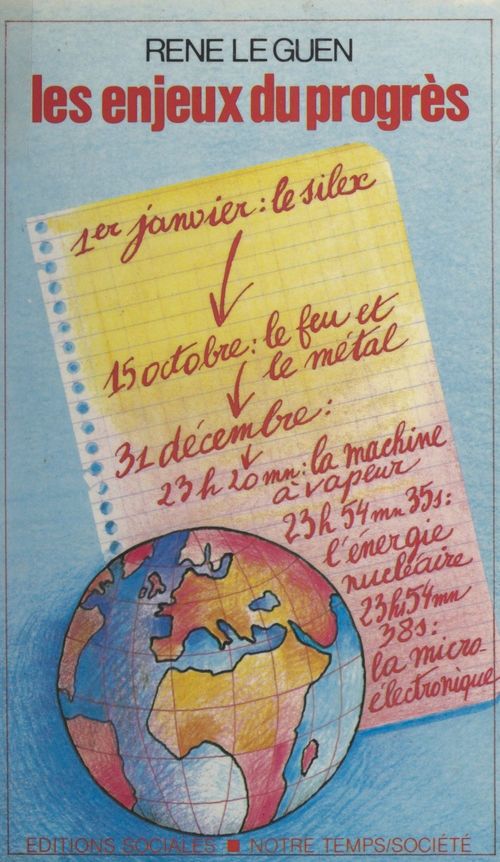 RENE LE GUEN
les enjeux du progrès
1er janvier : le silex
15 octobre : le feu et
le métal
31 décembre :
23 h 20 mn : la machine
à vapeur
23 h 54 mn 35s :
l'énergie
nucléaire
23h54mn
38s :
la micro-
électronique
EDITIONS SOCIALES ■ NOTRE TEMPS/SOCIÉTÉ